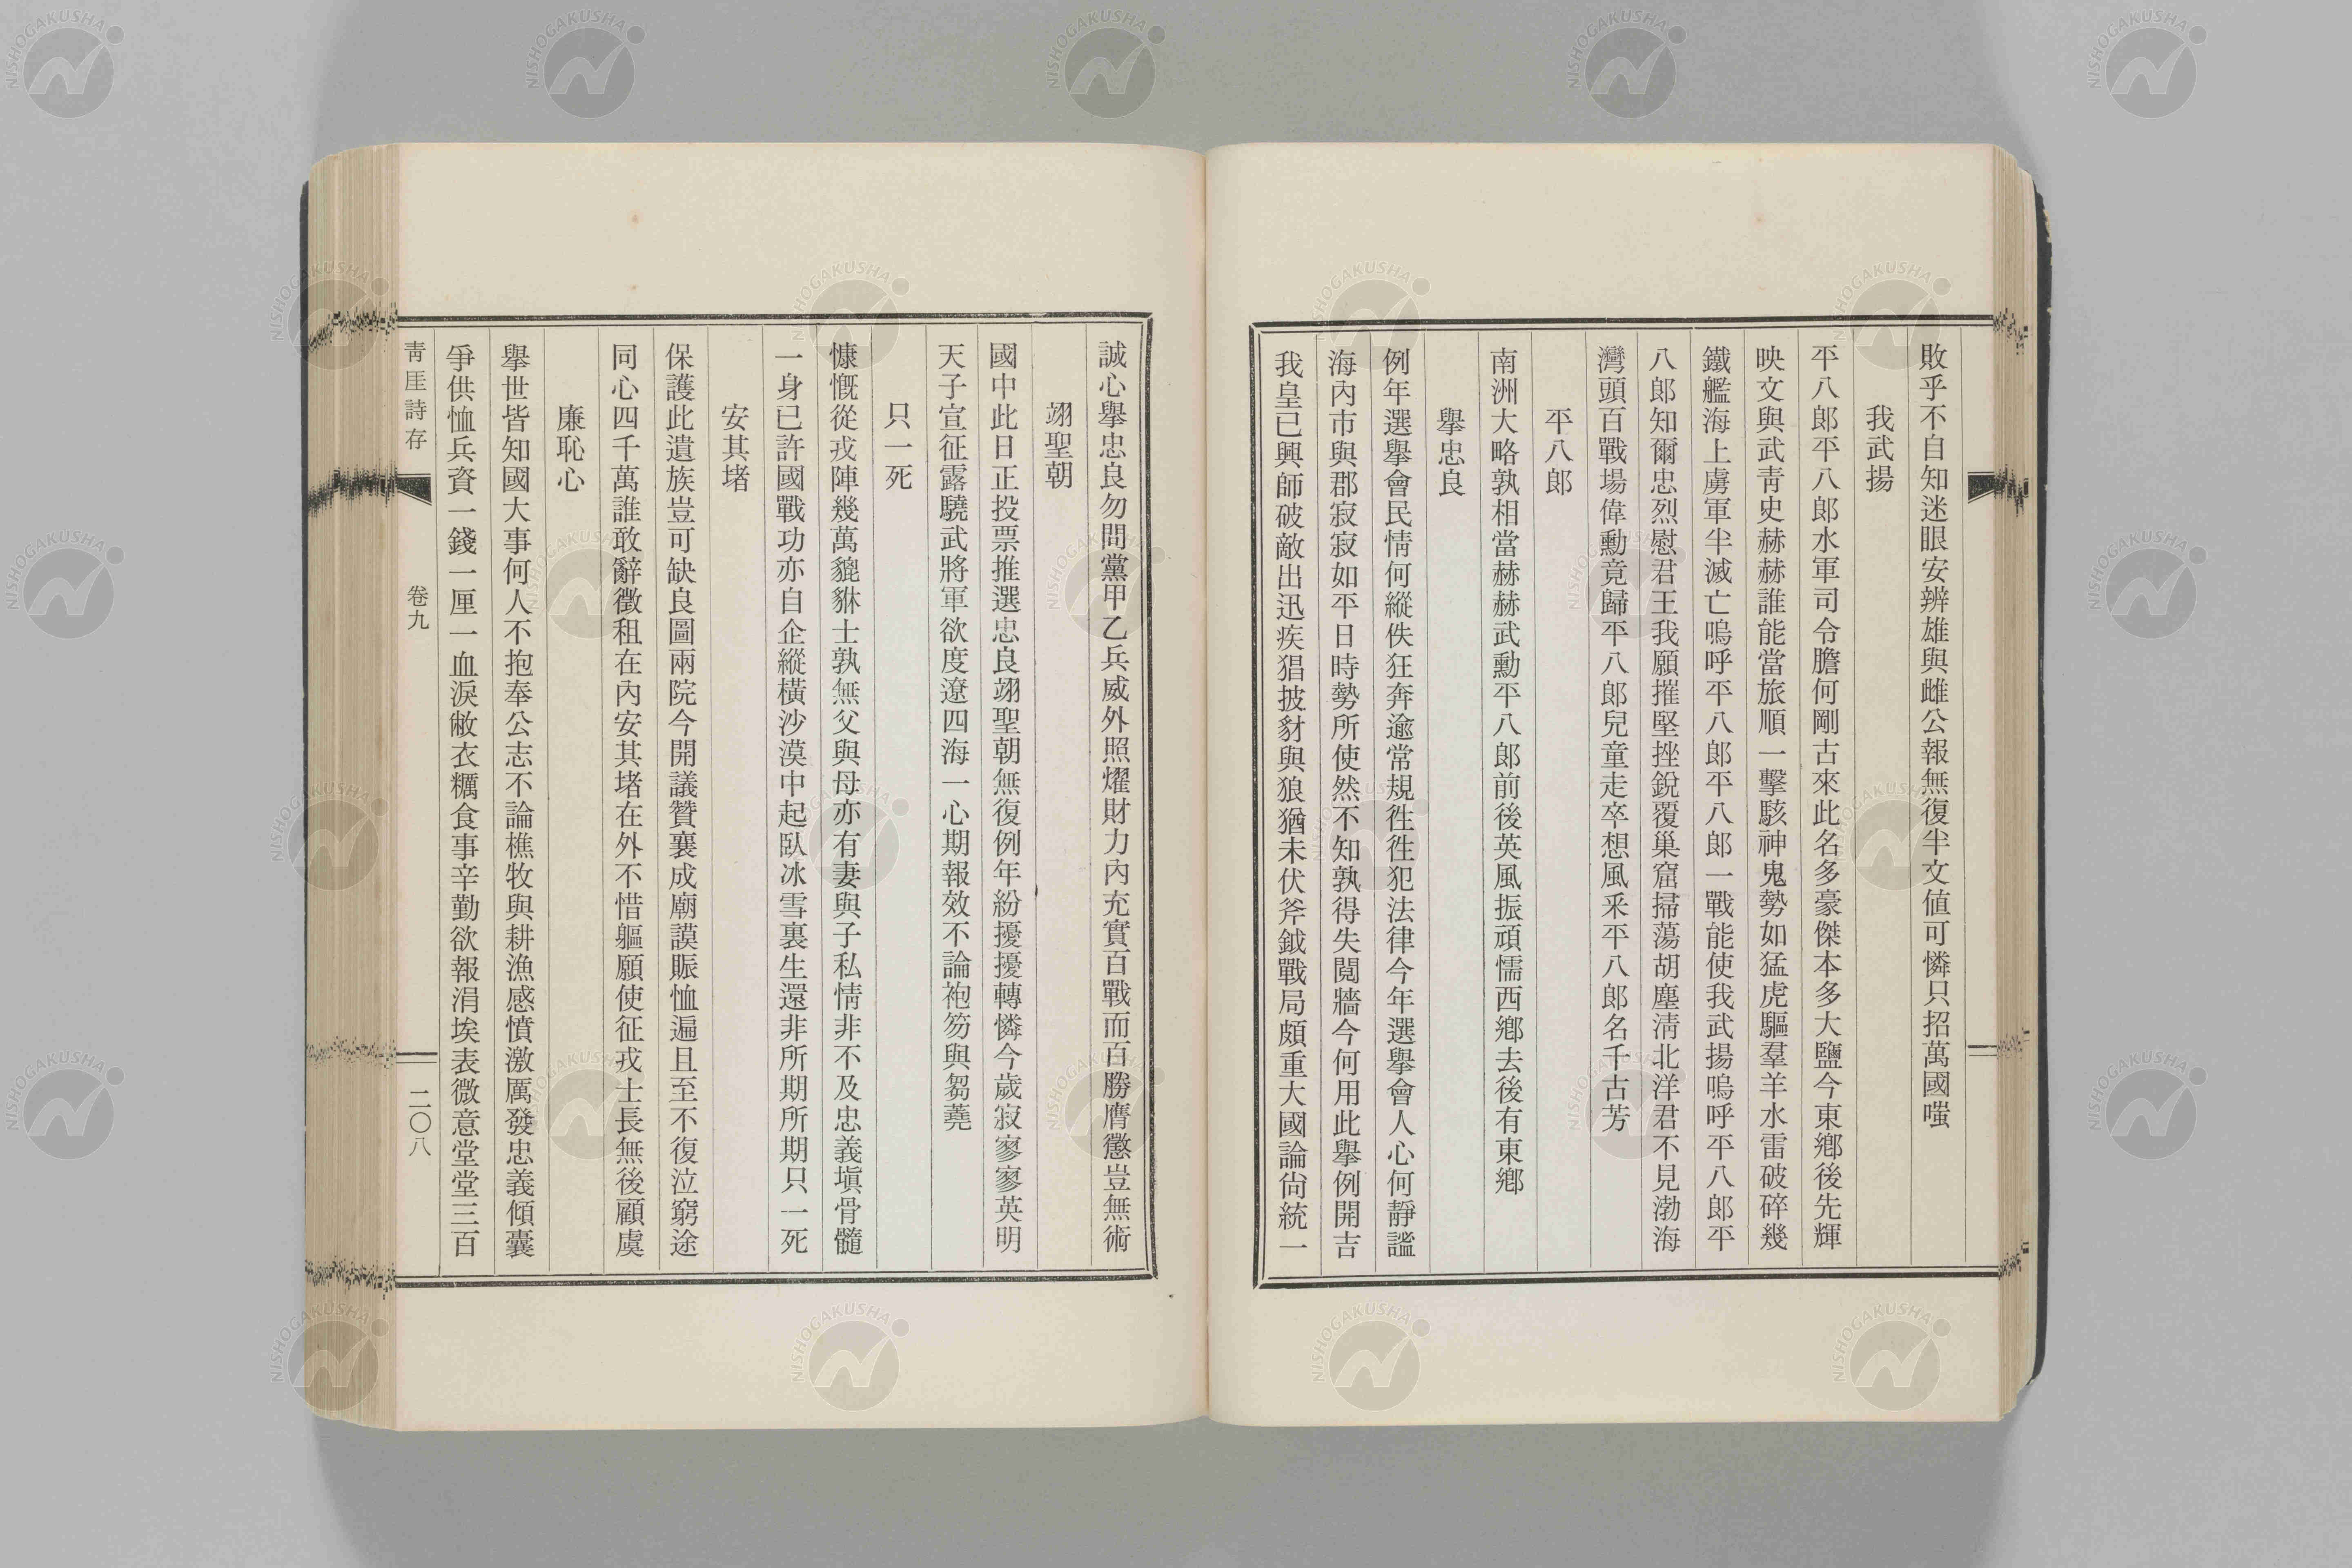 敗乎不自知迷眼安辨雄與雌公報無復半文値可憐只招萬國嗤
我武揚
平八郞平八郞水軍司令膽何剛古來此名多豪傑本多大鹽今東鄕後先輝
映文與武靑史赫赫誰能當旅順一擊駭神鬼勢如猛虎驅羣羊水雷破碎幾
鐵艦海上虜軍半滅亡嗚呼平八郞平八郞一戰能使我武揚嗚呼平八郞平
八郞知爾忠烈慰君王我願摧堅挫銳覆巢窟掃蕩胡塵淸北洋君不見渤海
灣頭百戰場偉勳竟歸平八郞兒童走卒想風釆平八郞名千古芳
平八郞
南洲大略孰相當赫赫武勳平八郞前後英風振頑懦西鄕去後有東鄕
擧忠良
例年選擧會民情何縱佚狂奔逾常規徃徃犯法律今年選擧會人心何靜謐
海內市與郡寂寂如平日時勢所使然不知孰得失閱牆今何用此擧例開吉
我皇已興師破敵出迅疾猖披豺與狼猶未伏斧鉞戰局頗重大國論尙統一
誠心擧忠良勿問黨甲乙兵威外照燿財力內充實百戰而百勝膺懲豈無術
翊聖朝
國中此日正投票推選忠良翊聖朝無復例年紛擾擾轉憐今歲寂寥寥英明
天子宣征露驍武將軍欲度遼四海一心期報效不論袍笏與芻蕘
只一死
慷慨從戎陣幾萬貔貅士孰無父與母亦有妻與子私情非不及忠義塡骨髓
一身已許國戰功亦自企縱橫沙漠中起臥冰雪裏生還非所期所期只一死
安其堵
保護此遺族豈可缺良圖兩院今開議贊襄成廟謨賑恤遍且至不復泣窮途
同心四千萬誰敢辭徵租在內安其堵在外不惜軀願使征戎士長無後顧虞
廉恥心
擧世皆知國大事何人不抱奉公志不論樵牧與耕漁感憤激厲發忠義傾囊
爭供恤兵資一錢一厘一血淚敝衣糲食事辛勤欲報涓埃表微意堂堂三百
靑厓詩存
卷九
二〇八